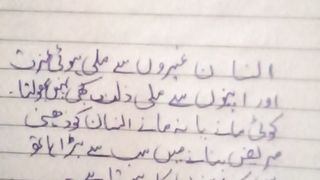 انسان غیروں سے ملی ہوئی عزت
اور اپنوں سے ملی ذلت کبھی نہیں بھولتا۔
کوئی مانے یا نہ مانے انسان کو ذہنی
مریض بنانے میں سب سے بڑا ہاتھ